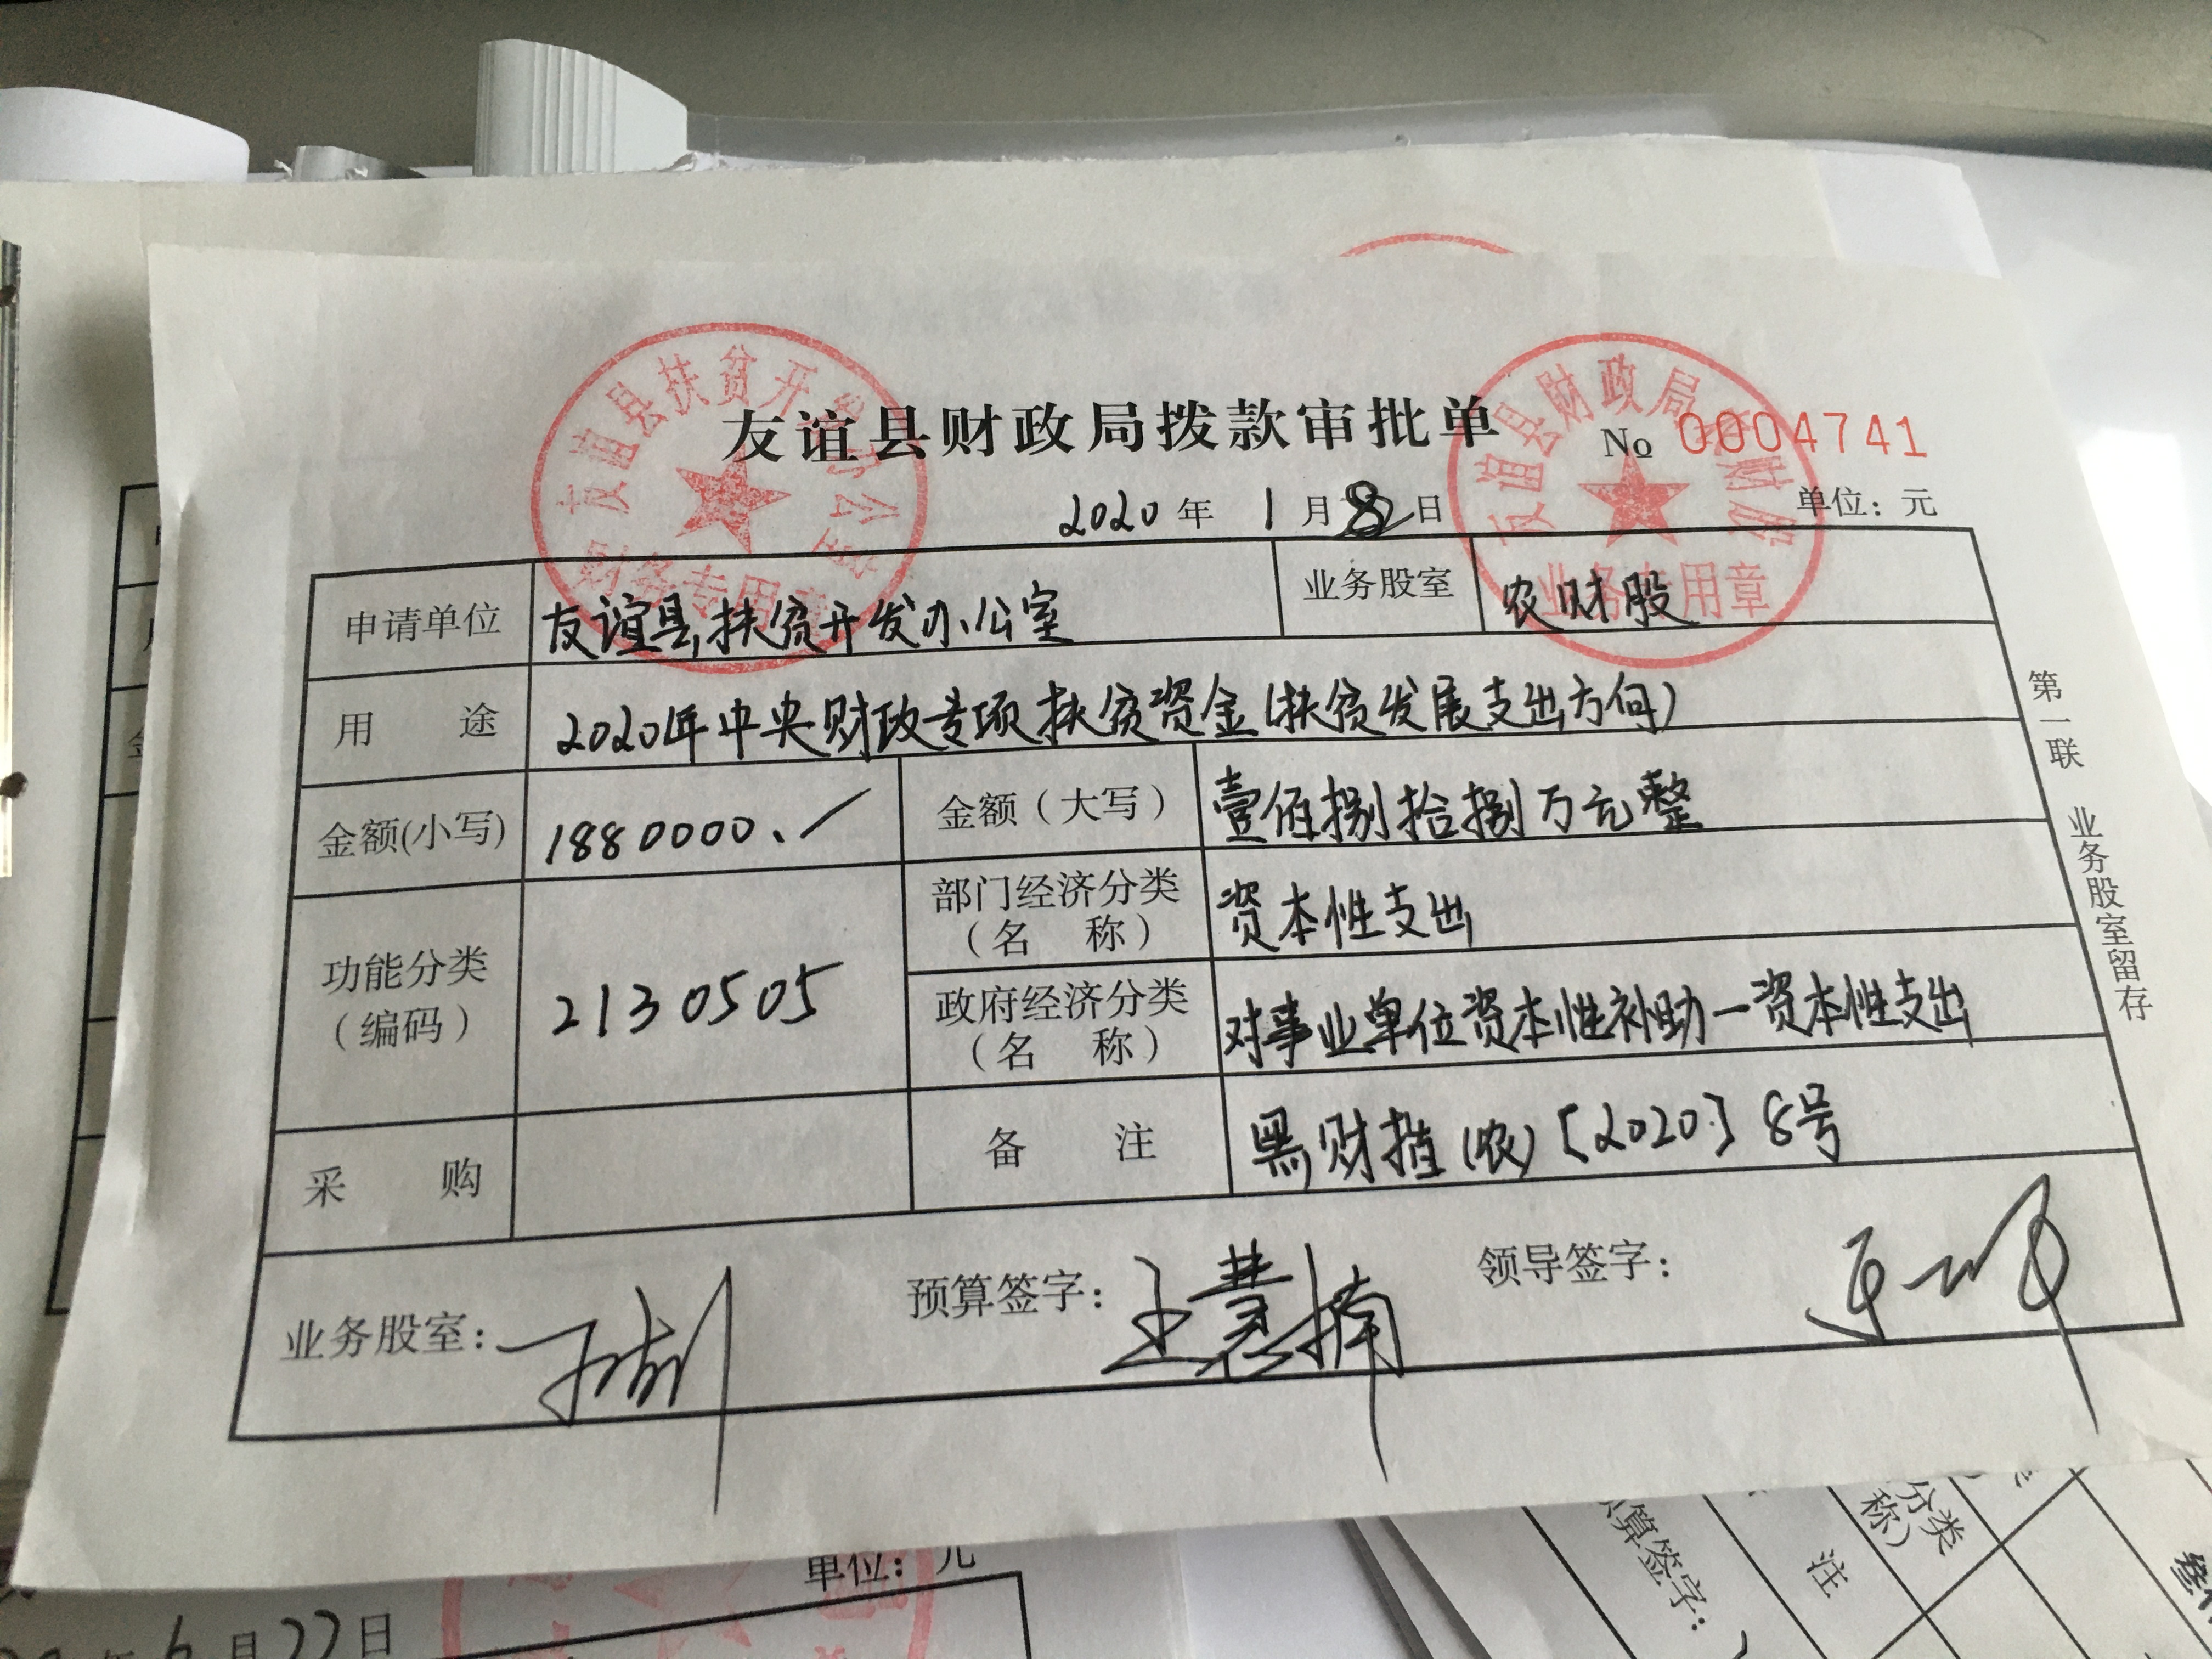 友谊县财政局拨款审批单
No 0004741
2020年 1月8日
单位：元
申请单位 友谊县扶贫开发办公室 业务股室 农财股
用 途 2020年中央财政专项扶贫资金(扶贫发展支出方向)
金额(小写) 1880000.／ 金额（大写） 壹佰捌拾捌万元整
功能分类（编码） 2130505
部门经济分类（名 称） 资本性支出
政府经济分类（名 称） 对事业单位资本性补助一资本性支出
采 购
备 注 黑财指(农)〔2020〕8号
业务股室： 预算签字：王慧楠 领导签字：
第一联 业务股室留存
友谊县扶贫开发办公室
业务专用章
友谊县财政局农财股
业务专用章
单位：元
年6月22日
算签字：
注
分类
称）